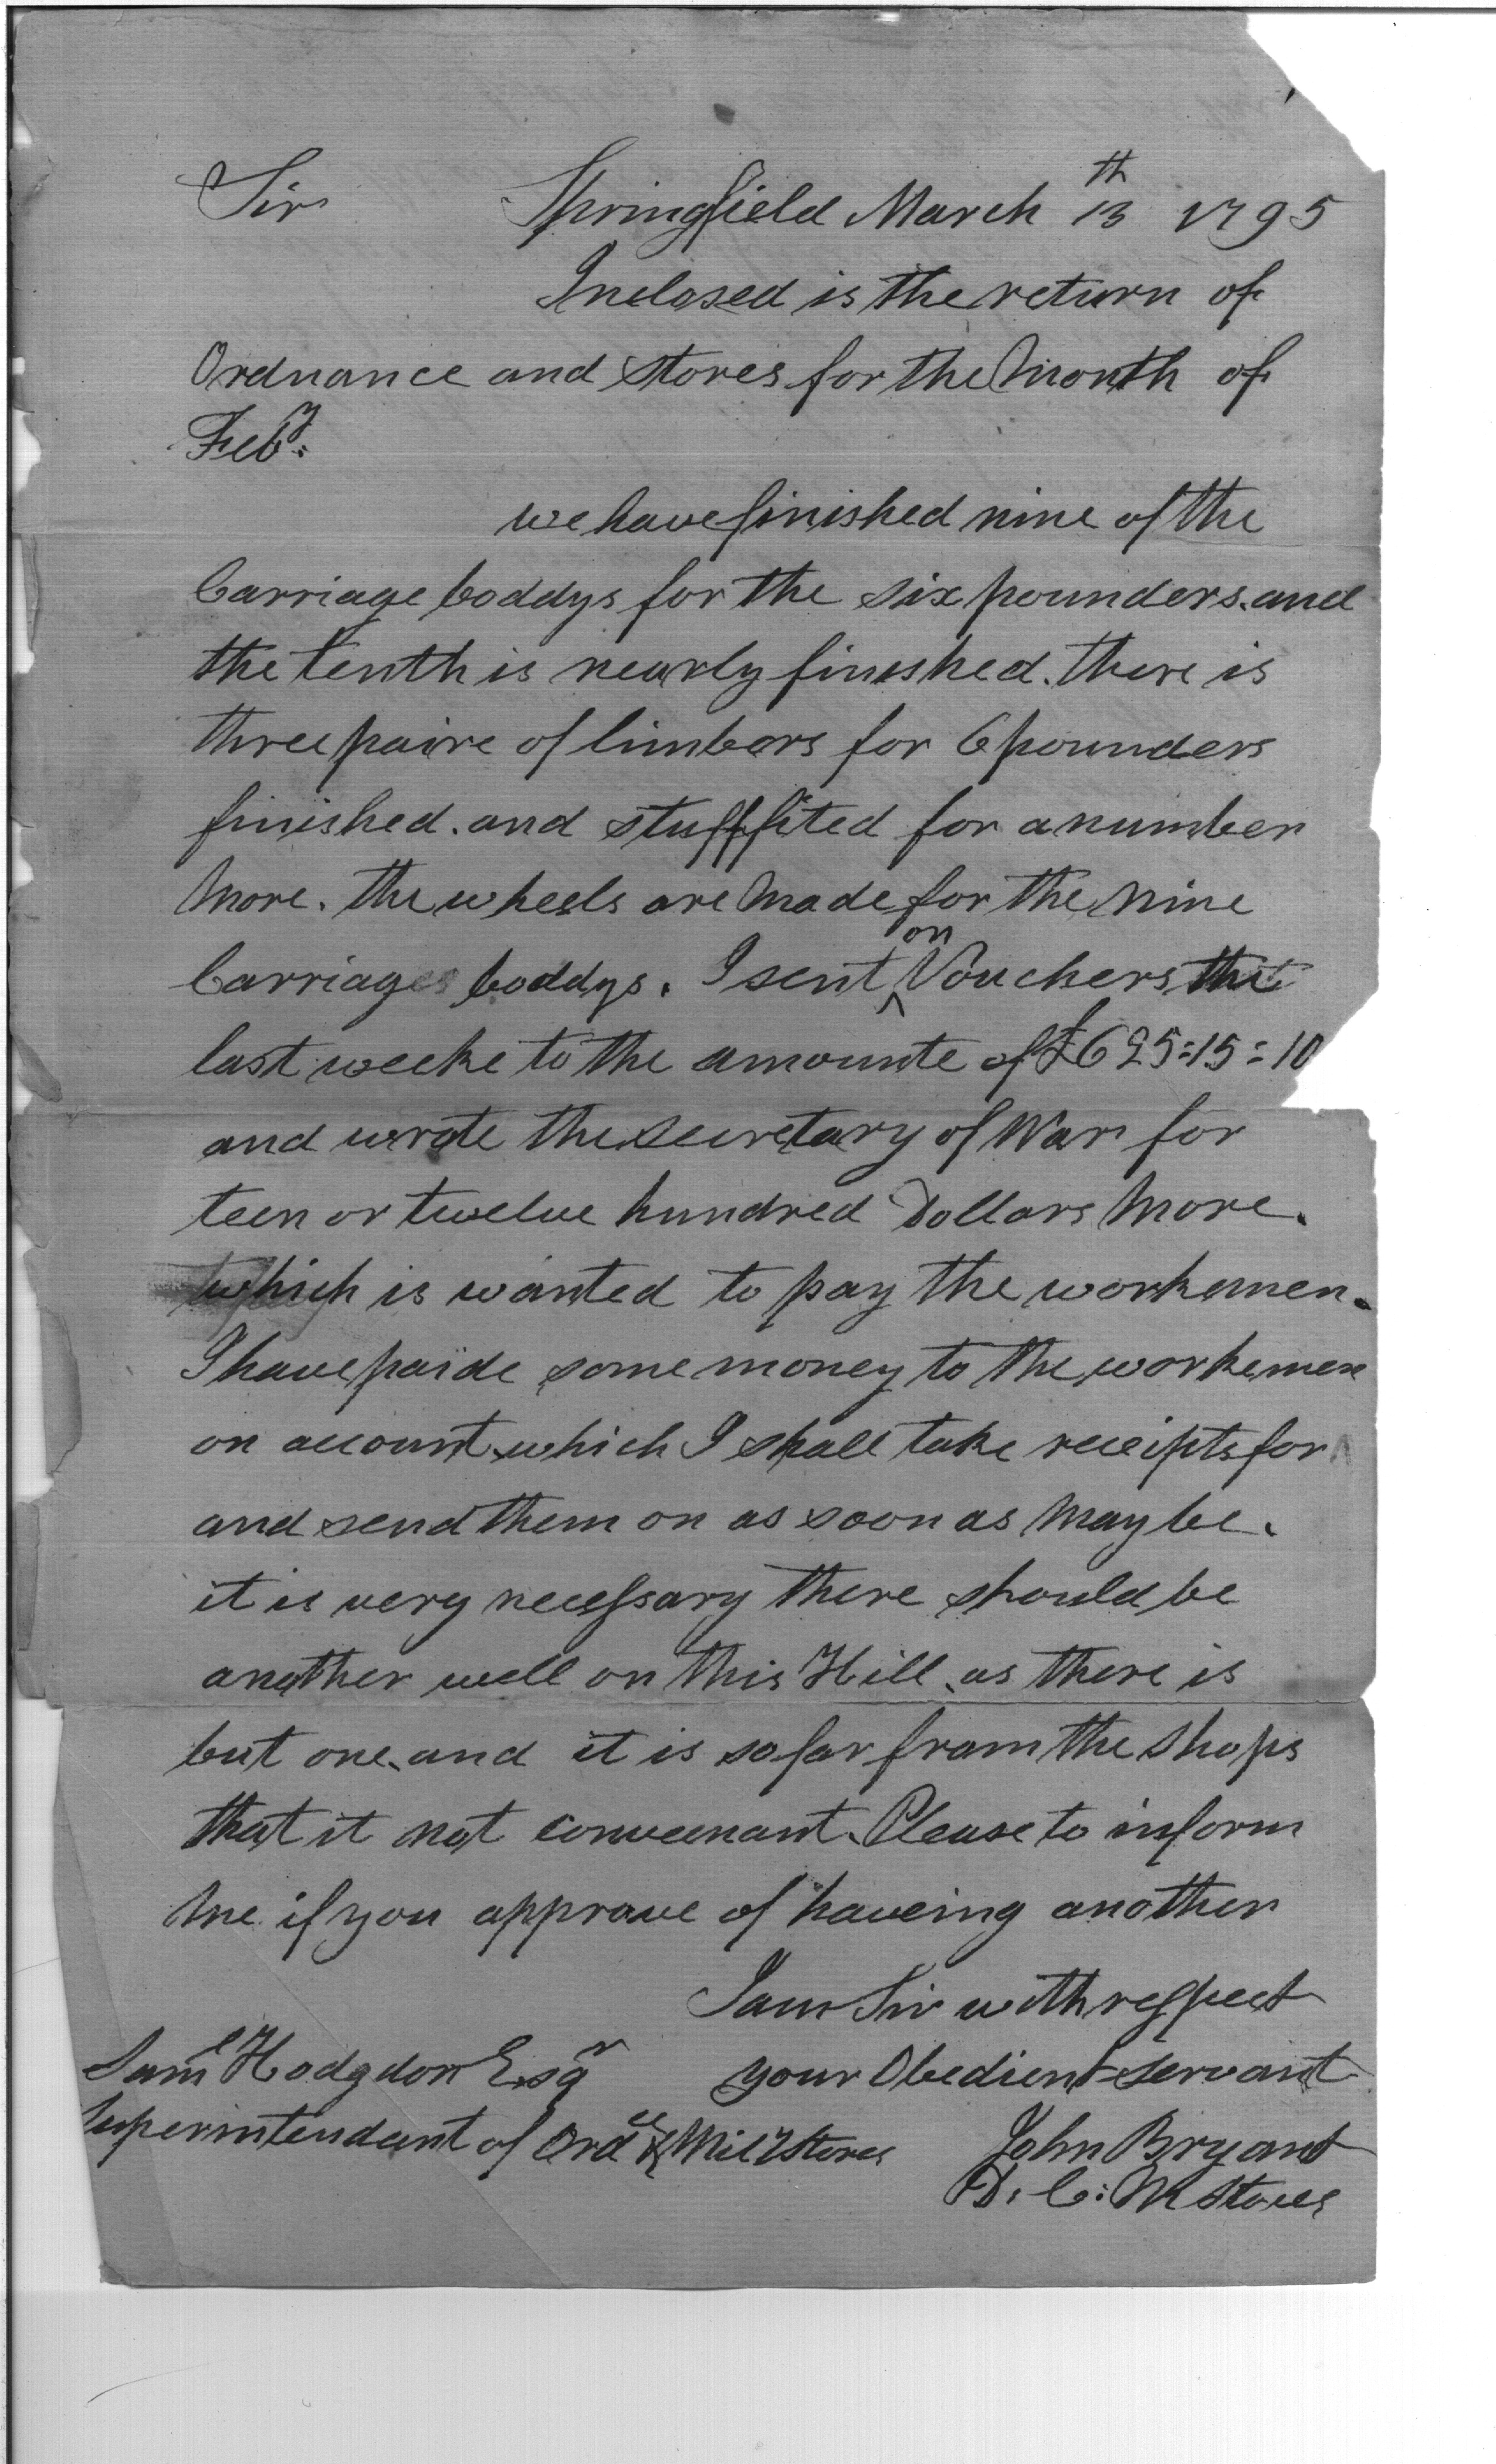 Sir Springfield March 13th 1795
Inclosed is the return of
Ordnance and stores for the Month of
Feby.
we have finished nine of the
Carriage boddys for the six pounders. and
the tenth is nearly finished. there is
three paire of limbers for 6 pounders
finished. and stuff fited for a number
More. the wheels are Made for the nine
Carriages boddys. I sent on Vouchers the
last weeke to the amounte of £625=15=10
and wrote the Secretary of War for
teen or twelve hundred Dollars More.
which is wanted to pay the workemen.
I have paide some money to the workemen
on account which I shall take receipts for
and send them on as soon as May be.
it is very necessary there should be
another well on this Hill, as there is
but one, and it is so far from the shops
that it not conveenant. Please to inform
Me if you approve of haveing another
I am Sir with respect
Saml Hodgdon Esqr your Obedient Servant
Superintendant of Ordce & Mily Stores John Bryant
D. C: M Stores